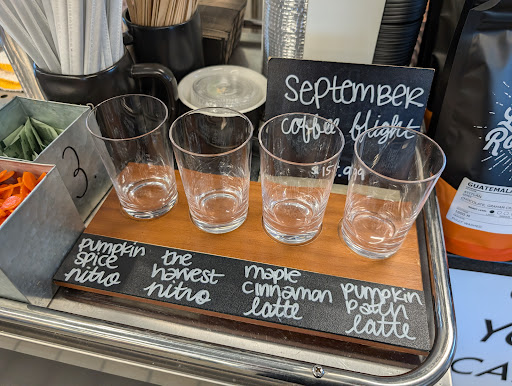 September
coffee flight
pumpkin
spice
nitro
the
harvest
nitro
maple
cinnamon
latte
pumpkin
patch
latte
3.
GUATEMALA